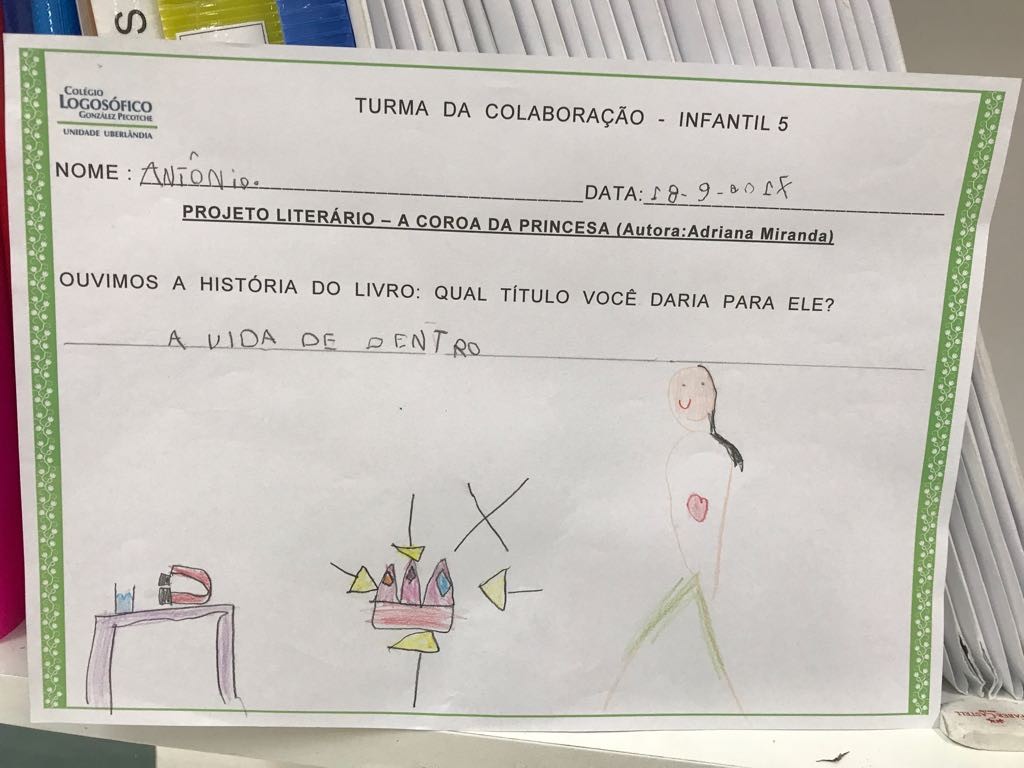 S
COLÉGIO
LOGOSÓFICO
GONZÁLEZ PECOTCHE
UNIDADE UBERLÂNDIA
TURMA DA COLABORAÇÃO - INFANTIL 5
NOME : ANTÔNIO. DATA: 18-9-2017
PROJETO LITERÁRIO – A COROA DA PRINCESA (Autora:Adriana Miranda)
OUVIMOS A HISTÓRIA DO LIVRO: QUAL TÍTULO VOCÊ DARIA PARA ELE?
A VIDA DE DENTRO